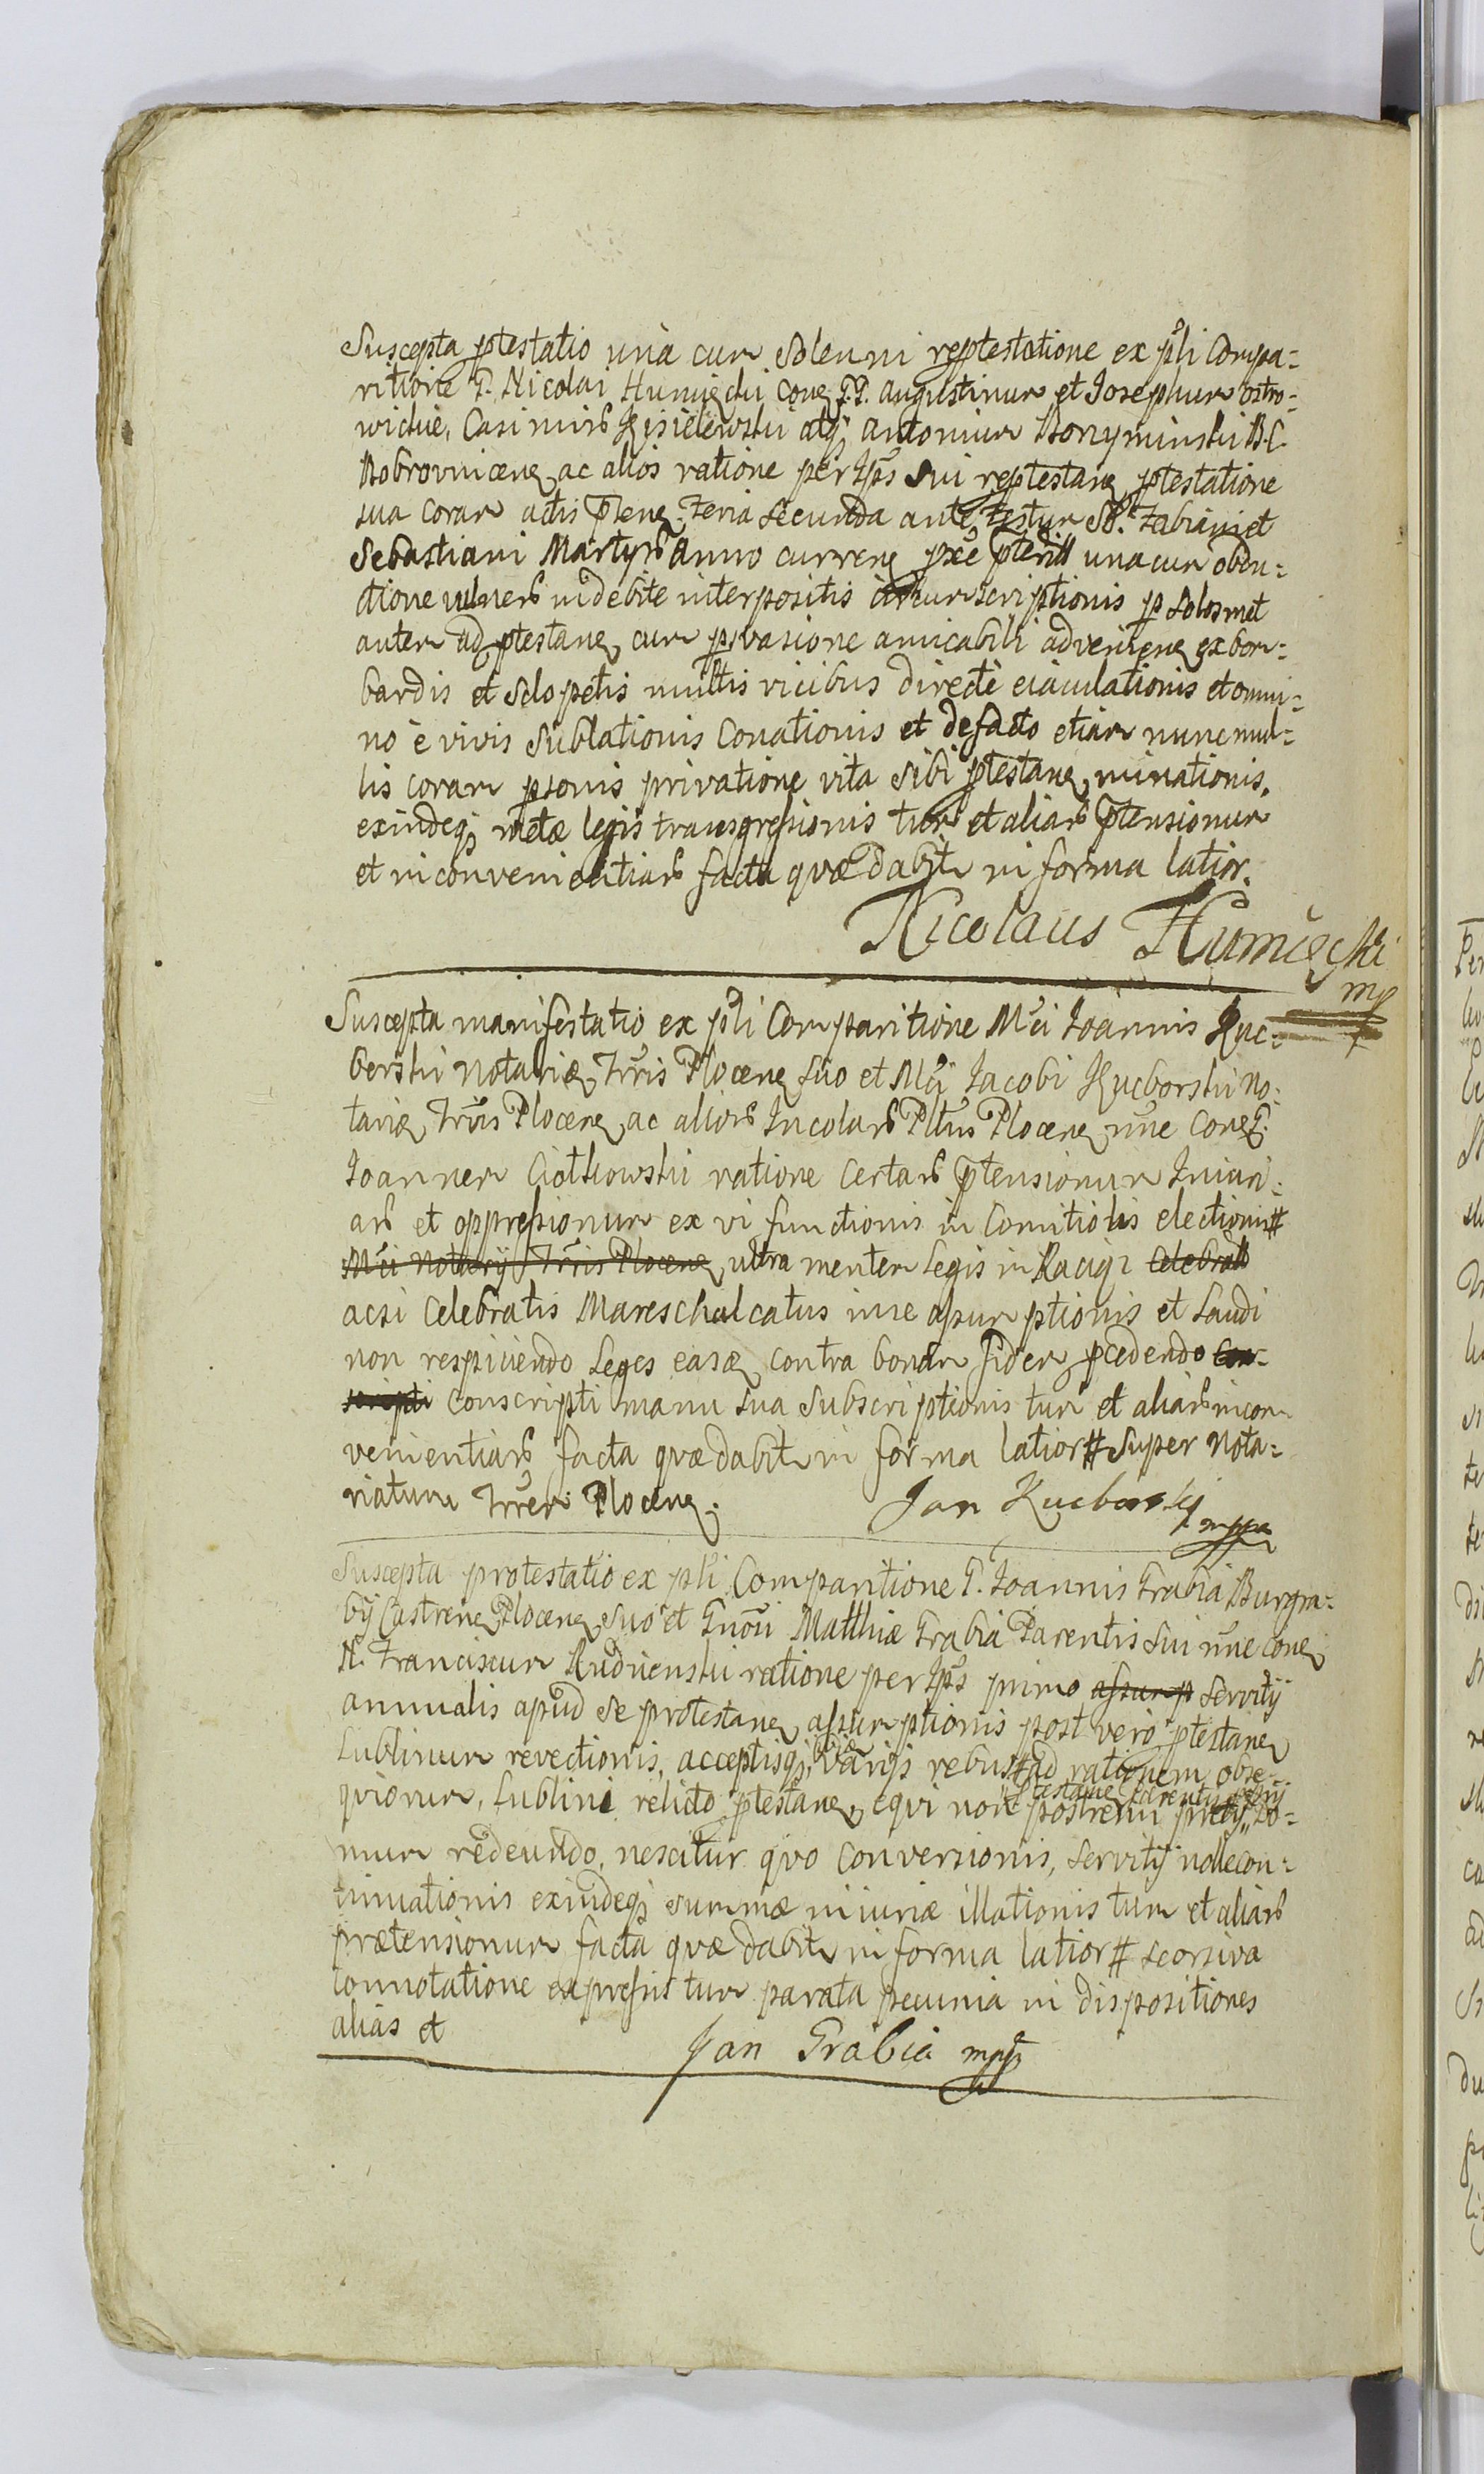 Suscepta ptestatio una cum Solenni reptestatione ex pli Compa=
ritione P. Nicolai Humięcki Cone P.P. Augustinum et Josephum Ostro=
wickie, Casimirũ Kisielewski atq Antonium Bonyminski B.C.
Bobrovnicens ac alios ratione per Ipũs Sui reptestan ptestatione
sua coram actis Plocen Feria Secunda ante festum SS. Fabiani et
Sebastiani Martyrũ Anno curren una cum obdu=
ctione vulnerũ indebite interpositis scriptionis p solosmet
autem ad ptestan cum psvasione amicabili advenien ex bom=
bardis et Sclopetis multis vicibus directe eiaculationis et omni=
no è vivis Sublationis Conationis et defacto etiam nunc mul=
tis coram psonis privatione vita Sibi ptestan minationis,
exindeq metæ legis transgressionis tum et aliarũ ptensionum
et inconvenientiarũ facta quæ dabit in forma latiori.
Nicolaus Humięcki
mp
Suscepta manifestatio ex pli Comparitione Mci Joannis Kuc=
borski Notariæ Trris Plocen suo et Mci Jacobi Kucborski No=
tariæ Trris Plocen ac aliorũ Incolarũ Pltus Plocen nne Cone P.
Joannem Ciołkowski ratione Certarũ ptensionum Iniuri=
arũ et oppressionum ex vi functionis in Comitiolis electionis #
Mci Notarij Trris Plocen ultra mentem Legis in Raciąż Celebratis
acsi Celebratis Mareschalcatus in se assumptionis et Laudi
non respiciendo Leges easq contra bonam fidem pcedendo Con-
scripti conscripti manu sua Subscriptionis tum et aliarũ incon
venientiarũ facta quæ dabit in forma latiori # Super Nota=
riatum Trrem Plocen.
Jan Kucborski mppa
Suscepta protestatio ex pli Comparitione P. Joannis Grabia Burgra=
bij Castren Plocen suo et Gnosi Matthiæ Grabia Parentis sui nne cone
N. Franciscum Rudnienski ratione per Ipũs primo assump Servitij
annualis apud se protestan assumptionis post vero ptestan
Lublinum revectionis, acceptisq varijs rebus ad rationem obse=
ptestan Parentis
quionum, Lublini relicto ptestan equi non postremi pretij Do=
mum redeundo, nescitur quo Conversionis, servitij nolle con=
tinuationis exindeq summæ iniuriæ illationis tum et aliarũ
prætensionum facta quæ dabit in forma latiori # seorsiva
connotatione expressis tum parata pecunia in dispositiones
alias et
Jan Grabia mpp